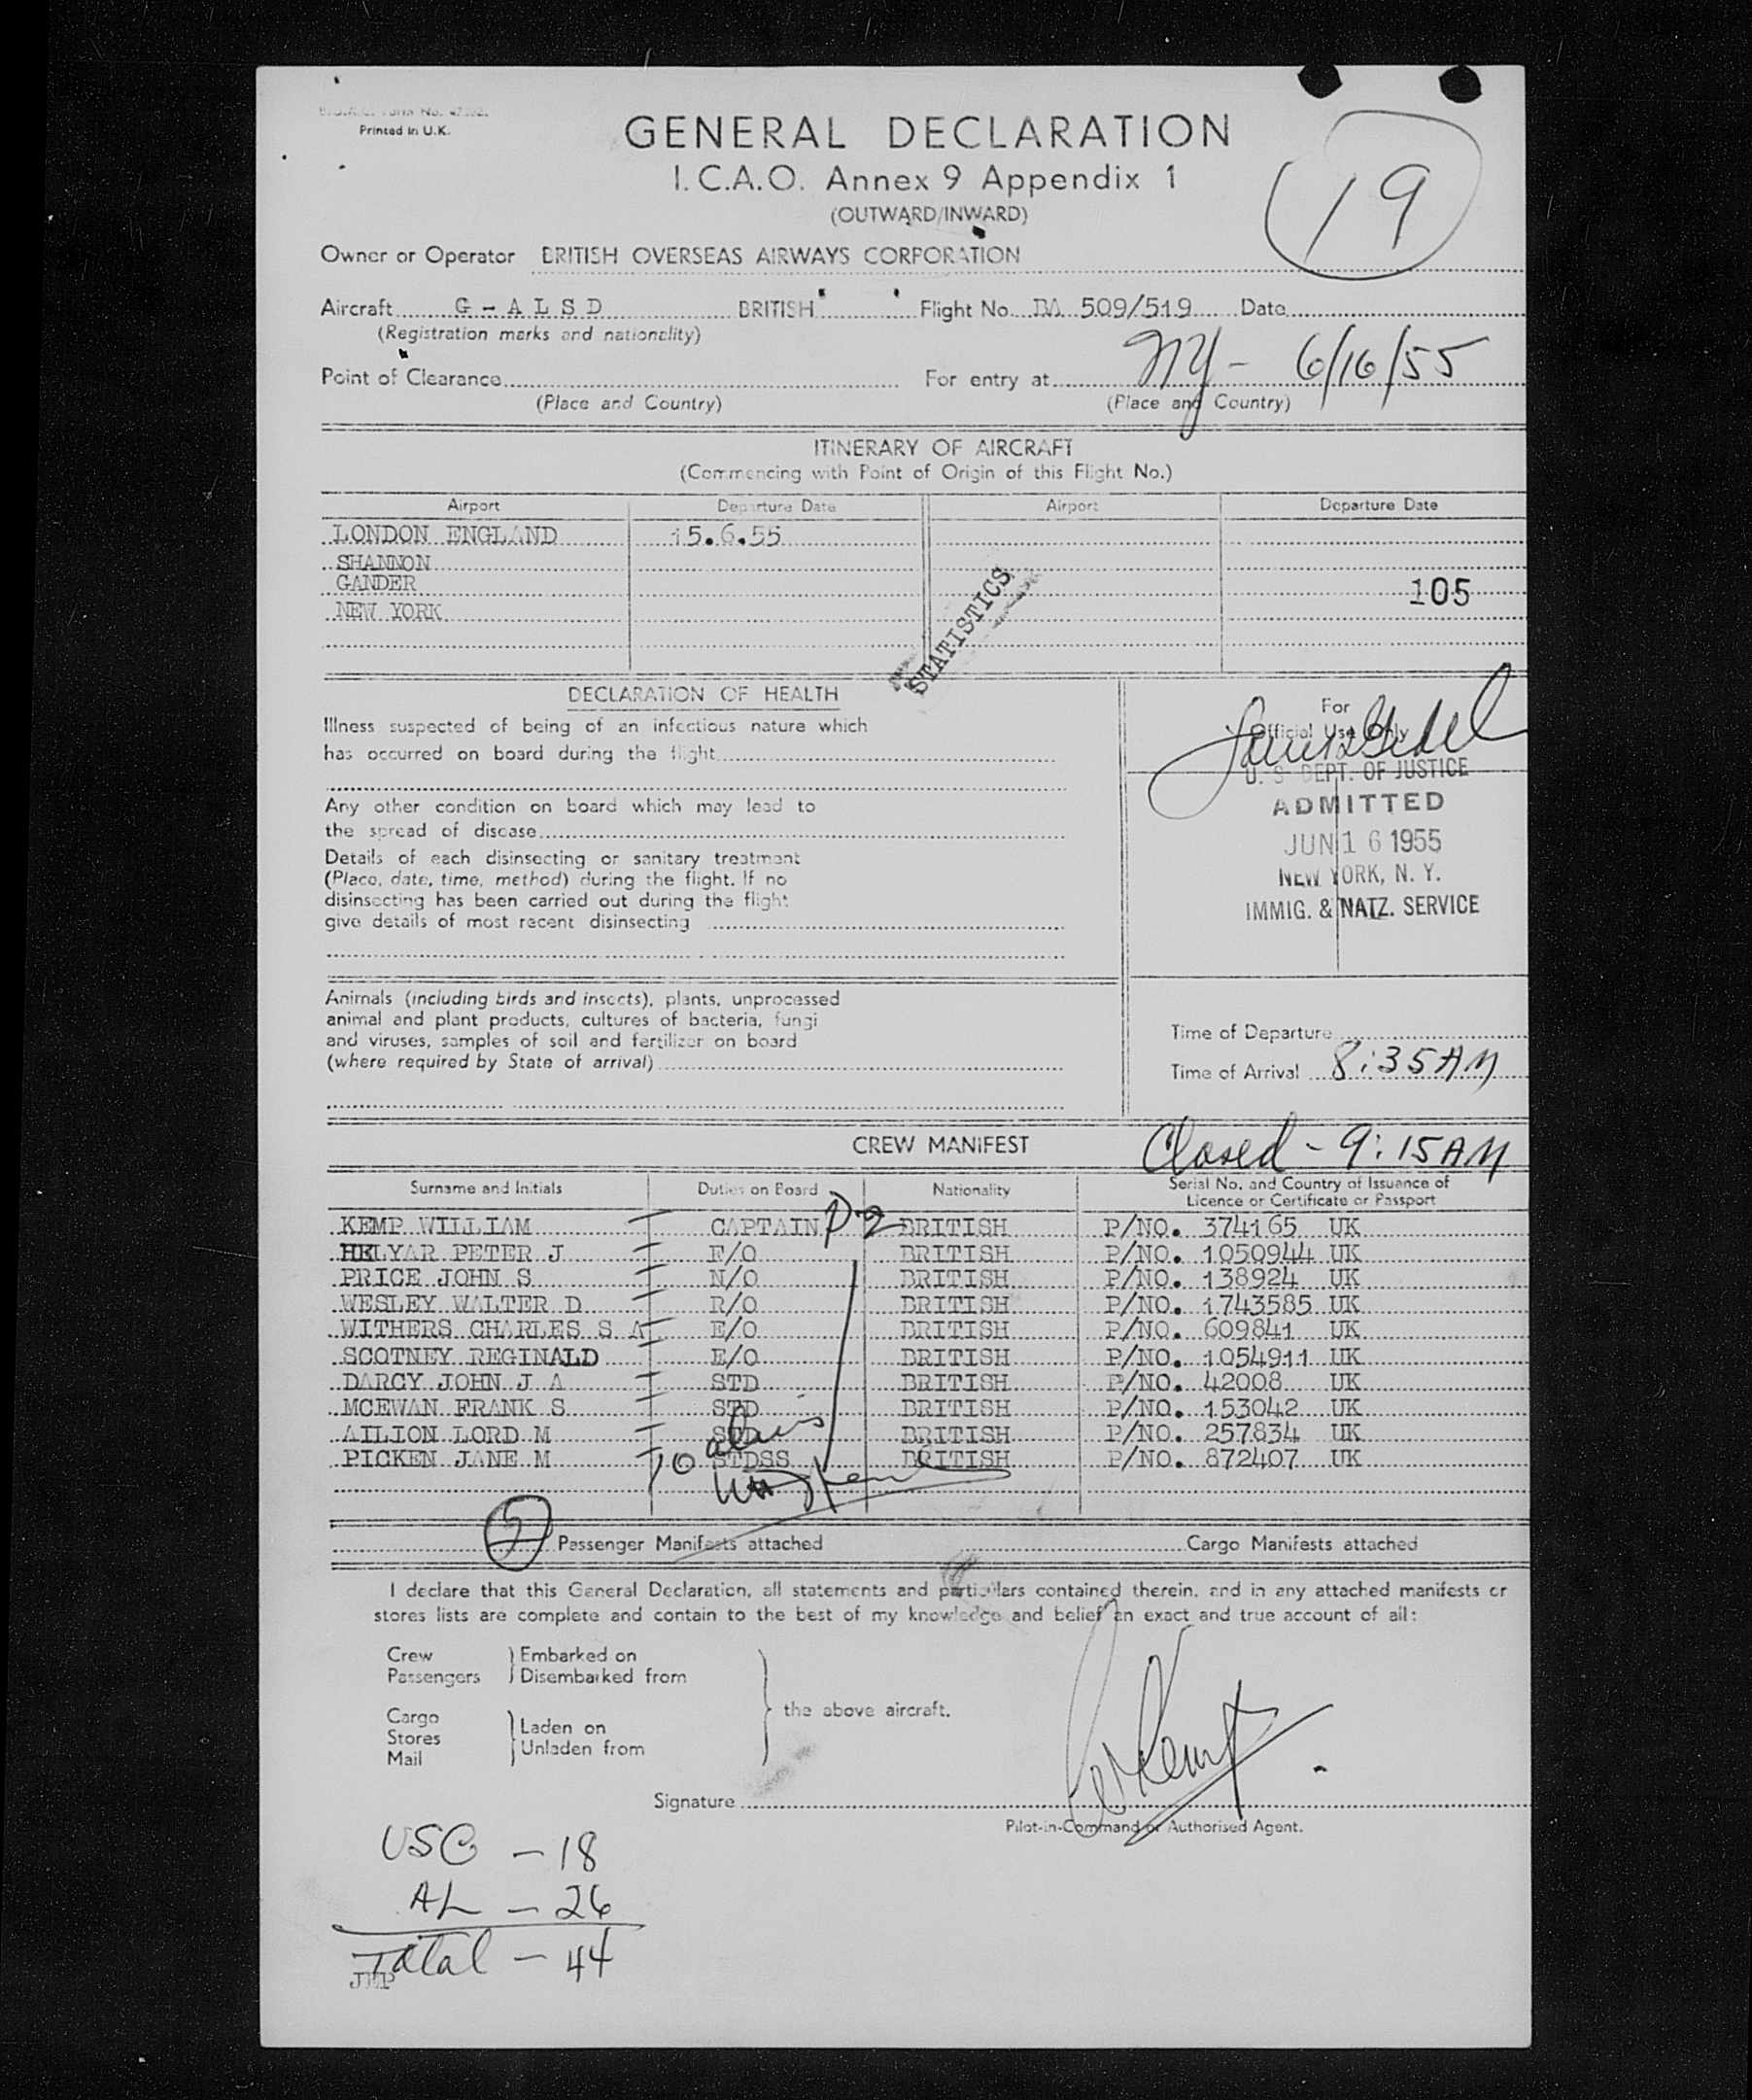 Printed in U.K.
GENERAL DECLARATION
I.C.A.O. Annex 9 Appendix 1
(OUTWARD/INWARD)
19
Owner or Operator BRITISH OVERSEAS AIRWAYS CORPORATION
Aircraft G-ALSD BRITISH Flight No. BA 509/519 Date
(Registration marks and nationality)
Point of Clearance For entry at NY- 6/16/55
(Place and Country) (Place and Country)
ITINERARY OF AIRCRAFT
(Commencing with Point of Origin of this Flight No.)
Airport Departure Date Airport Departure Date
LONDON ENGLAND 15.6.55
SHANNON
GANDER 105
NEW YORK
STATISTICS
DECLARATION OF HEALTH
Illness suspected of being of an infectious nature which
has occurred on board during the flight
Any other condition on board which may lead to
the spread of disease
Details of each disinsecting or sanitary treatment
(Place, date, time, method) during the flight. If no
disinsecting has been carried out during the flight
give details of most recent disinsecting
For
Official Use Only
U. S. DEPT. OF JUSTICE
ADMITTED
JUN 16 1955
NEW YORK, N. Y.
IMMIG. & NATZ. SERVICE
Animals (including birds and insects), plants, unprocessed
animal and plant products, cultures of bacteria, fungi
and viruses, samples of soil and fertilizer on board
(where required by State of arrival)
Time of Departure
Time of Arrival 8:35AM
CREW MANIFEST Closed - 9:15AM
Surname and Initials Duties on Board Nationality Serial No. and Country of Issuance of
Licence or Certificate or Passport
KEMP WILLIAM CAPTAIN D-2 BRITISH P/NO. 374165 UK
HELYAR PETER J F/O BRITISH P/NO. 1050944 UK
PRICE JOHN S N/O BRITISH P/NO. 138924 UK
WESLEY WALTER D R/O BRITISH P/NO. 1743585 UK
WITHERS CHARLES S A E/O BRITISH P/NO. 609841 UK
SCOTNEY REGINALD E/O BRITISH P/NO. 1054911 UK
DARCY JOHN J A STD BRITISH P/NO. 42008 UK
MCEWAN FRANK S STD BRITISH P/NO. 153042 UK
AILION LORD M STD BRITISH P/NO. 257834 UK
PICKEN JANE M STDSS BRITISH P/NO. 872407 UK
10 aliens
Passenger Manifests attached Cargo Manifests attached
I declare that this General Declaration, all statements and particulars contained therein, and in any attached manifests or
stores lists are complete and contain to the best of my knowledge and belief an exact and true account of all:
Crew Embarked on
Passengers Disembarked from
the above aircraft.
Cargo
Stores Laden on
Mail Unladen from
Signature
Pilot-in-Command or Authorised Agent.
USC - 18
AL - 26
Total - 44
JEP